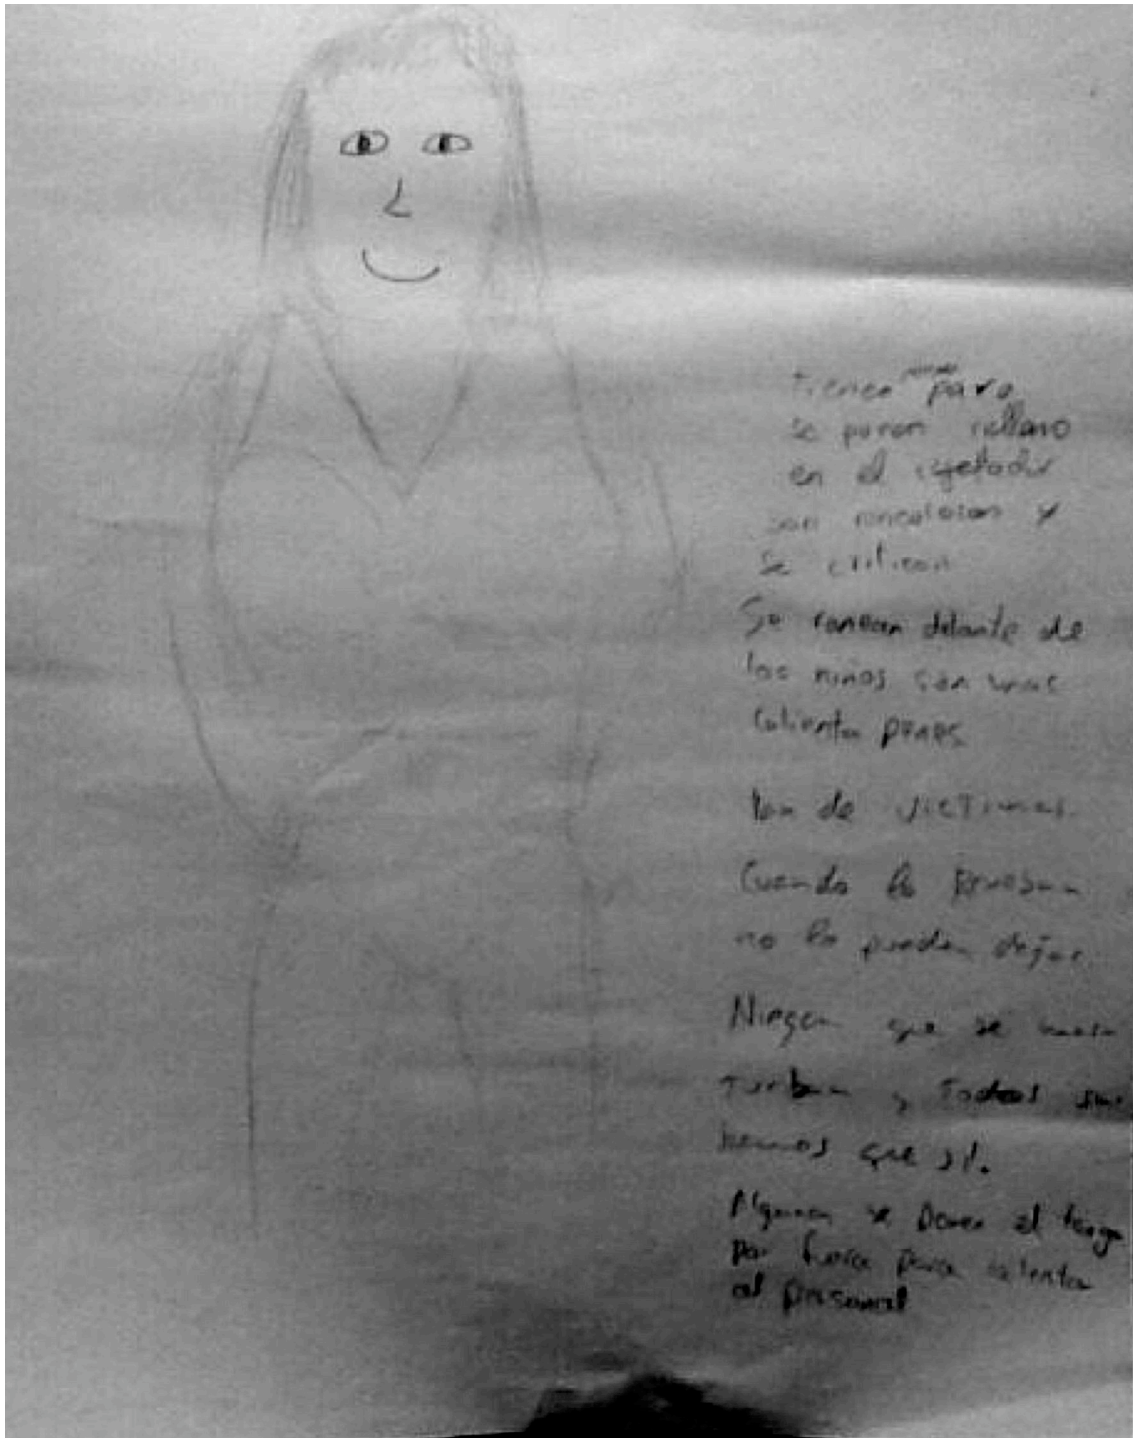 Tienen para
se ponen relleno
en el sujetador
son rencorosas y
se critican
Se ronean delante de
los niños son unas
Calienta penes
Van de victimas.
Cuando lo prueban
no lo pueden dejar.
Niegan que se mas
turban y Todos
hemos que sí.
Algunas se ponen el tanga
por fuera para calenta
al personal